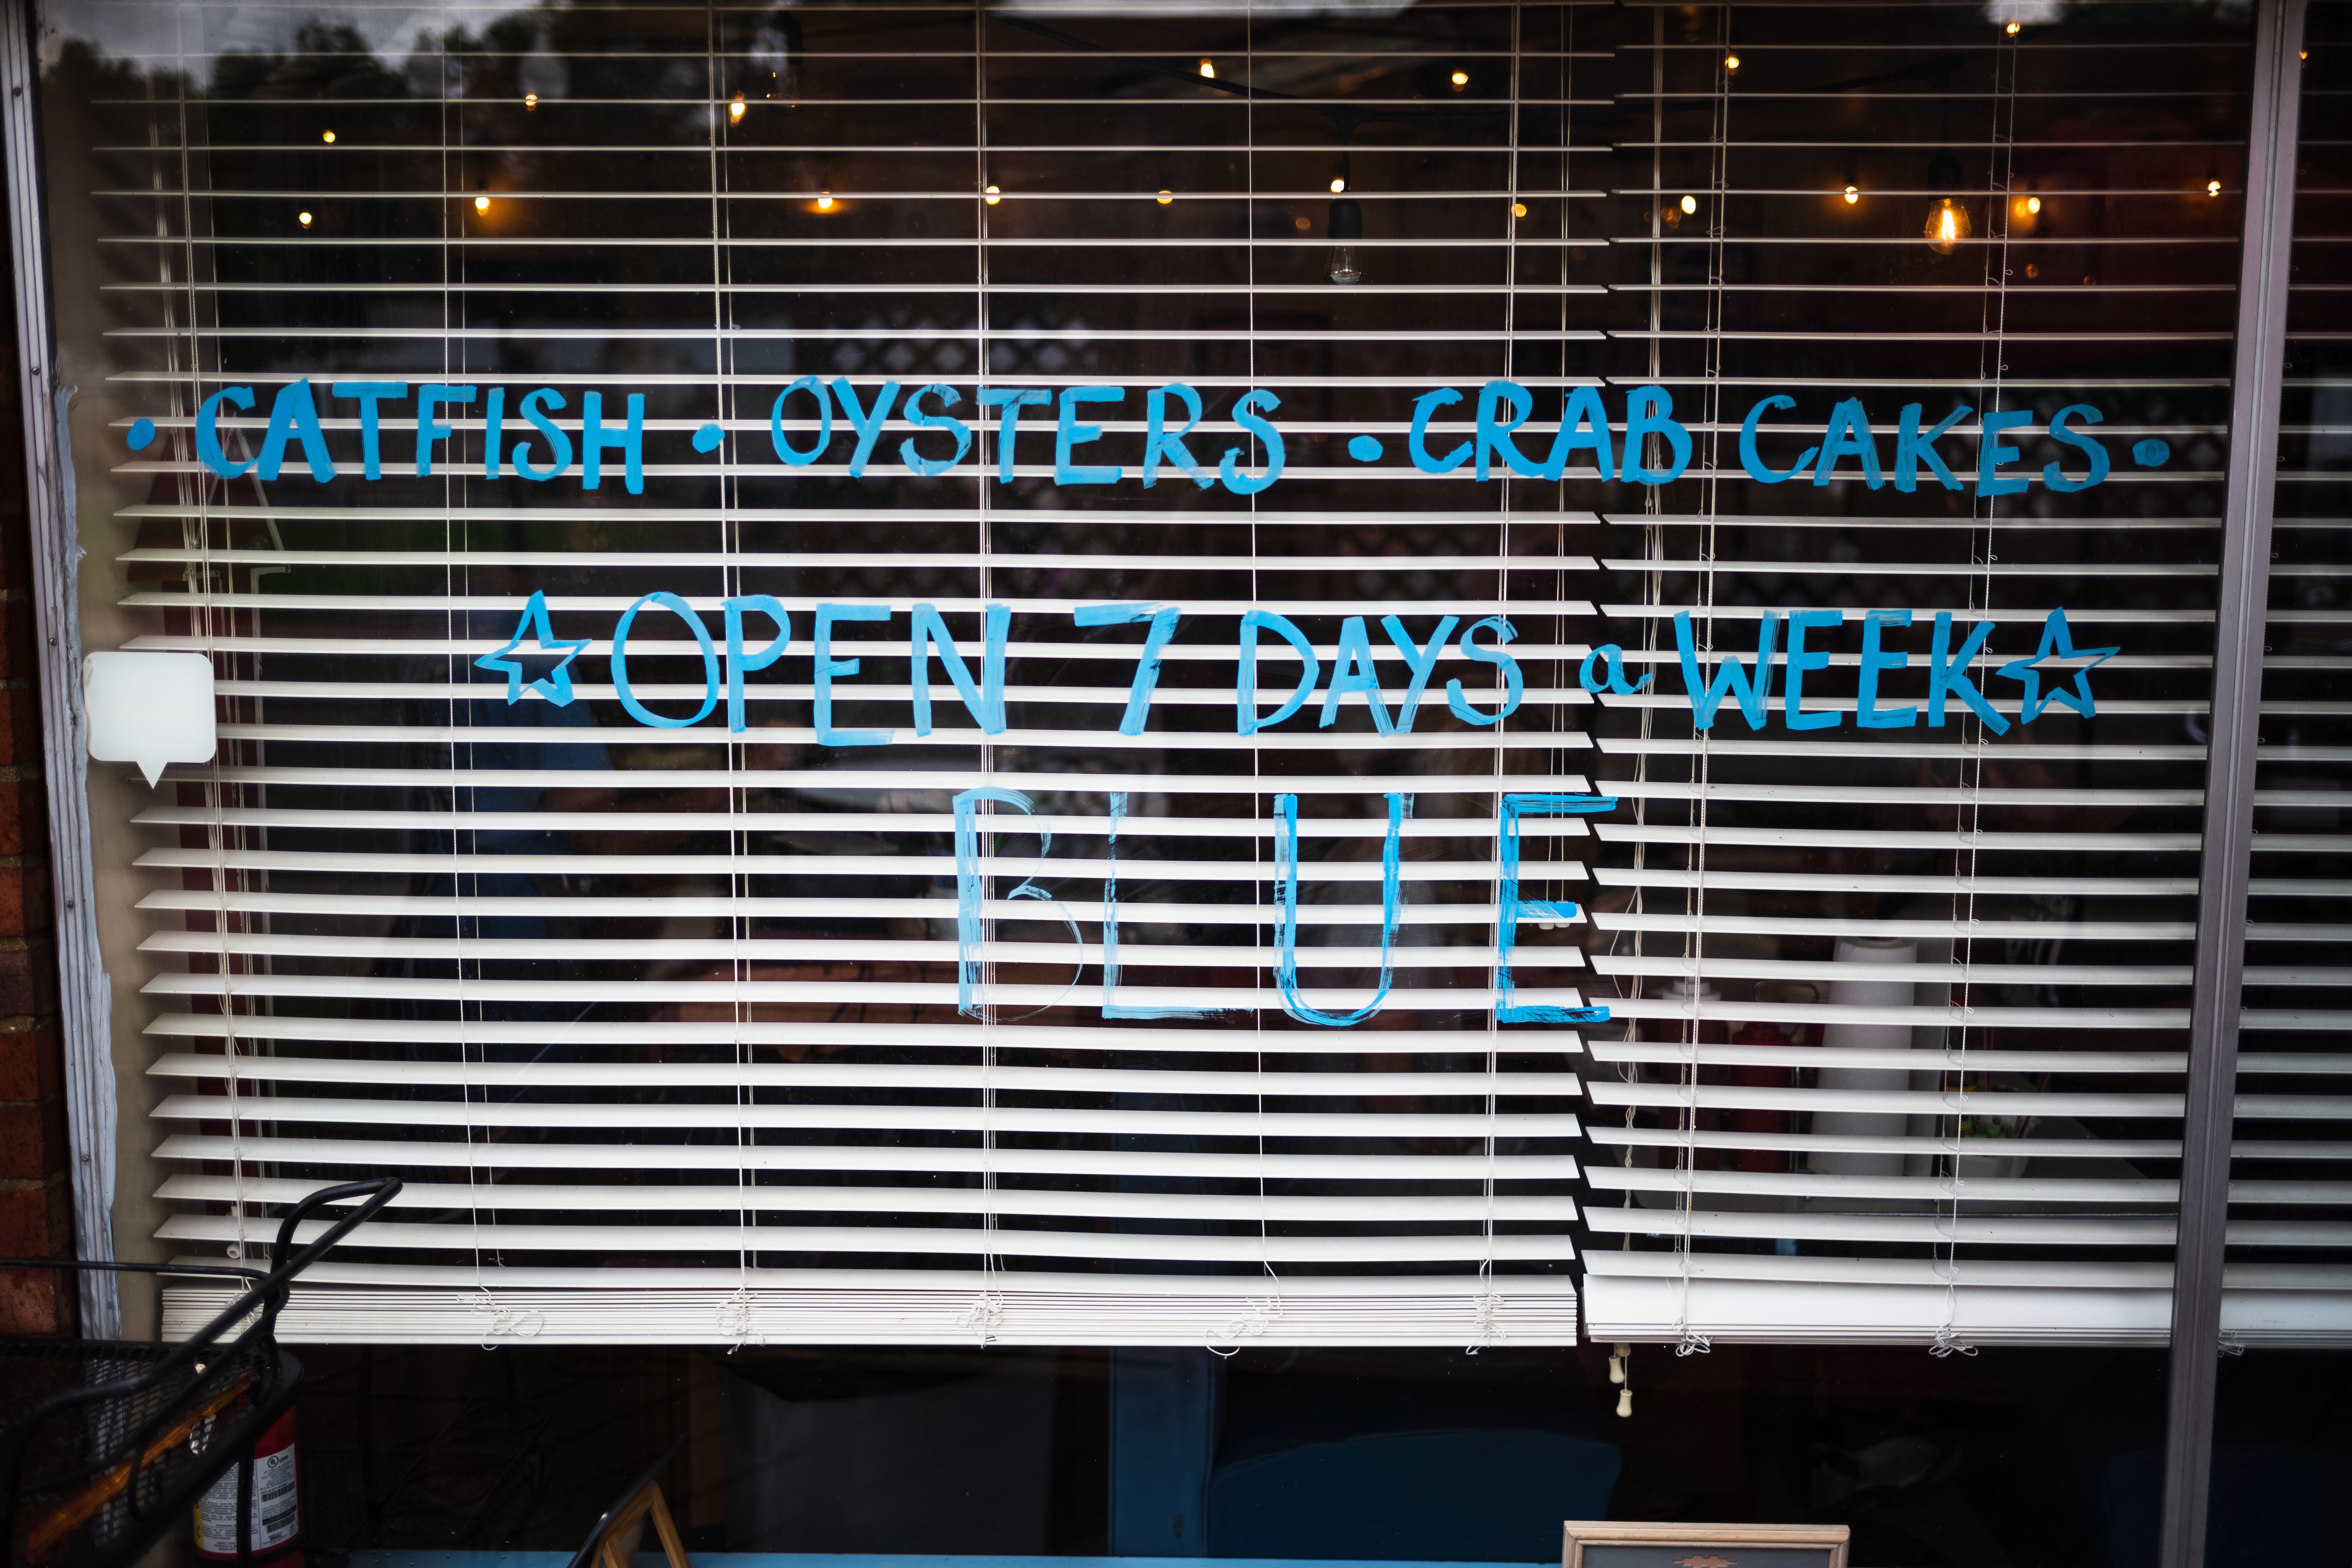 • CATFISH • OYSTERS • CRAB CAKES •
☆ OPEN 7 DAYS a WEEK ☆
BLUE